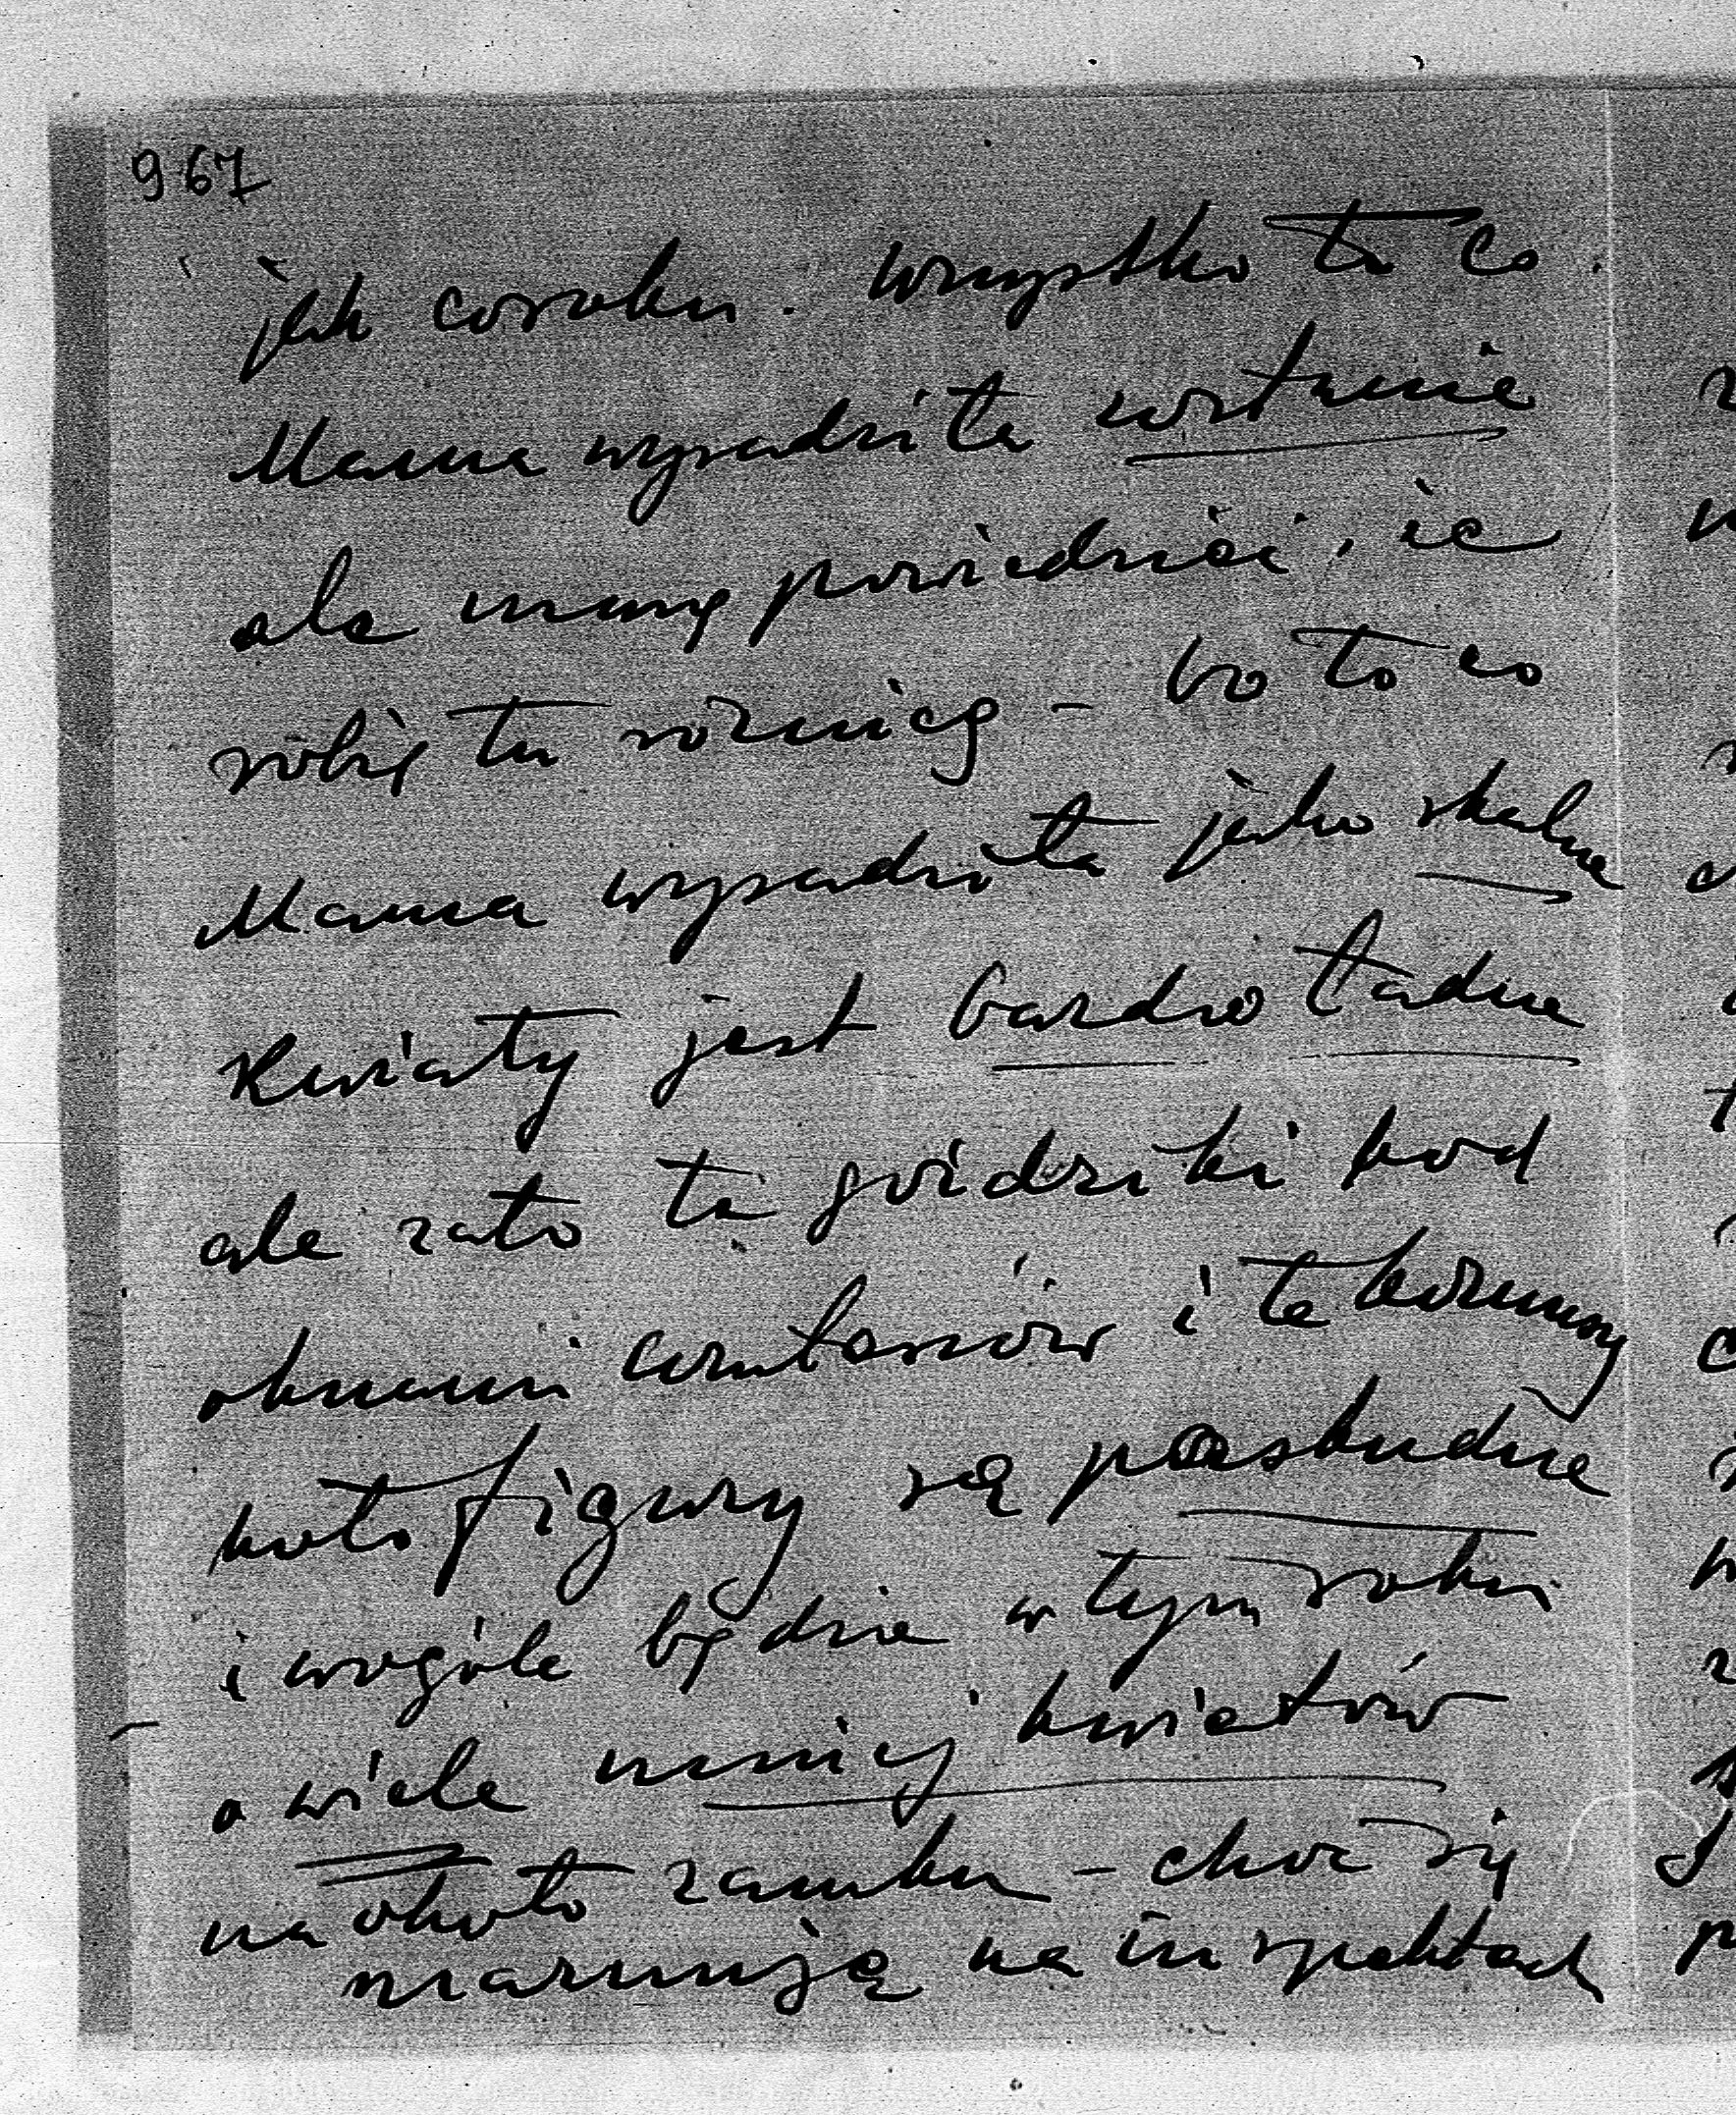 967
jak coroku. Wszystko to co
Mama wysadziła wstrętnie
ale muszę powiedzieć, że
robię tu różnicę – bo to co
Mama wysadziła jako skalne
kwiaty jest bardzo ładne
ale zato te goździki pod
oknami i te
koło figury są paskudne
i wogóle będzie w tym roku
o wiele mniej kwiatów
na około zamku – choć się
marnują na inspektach